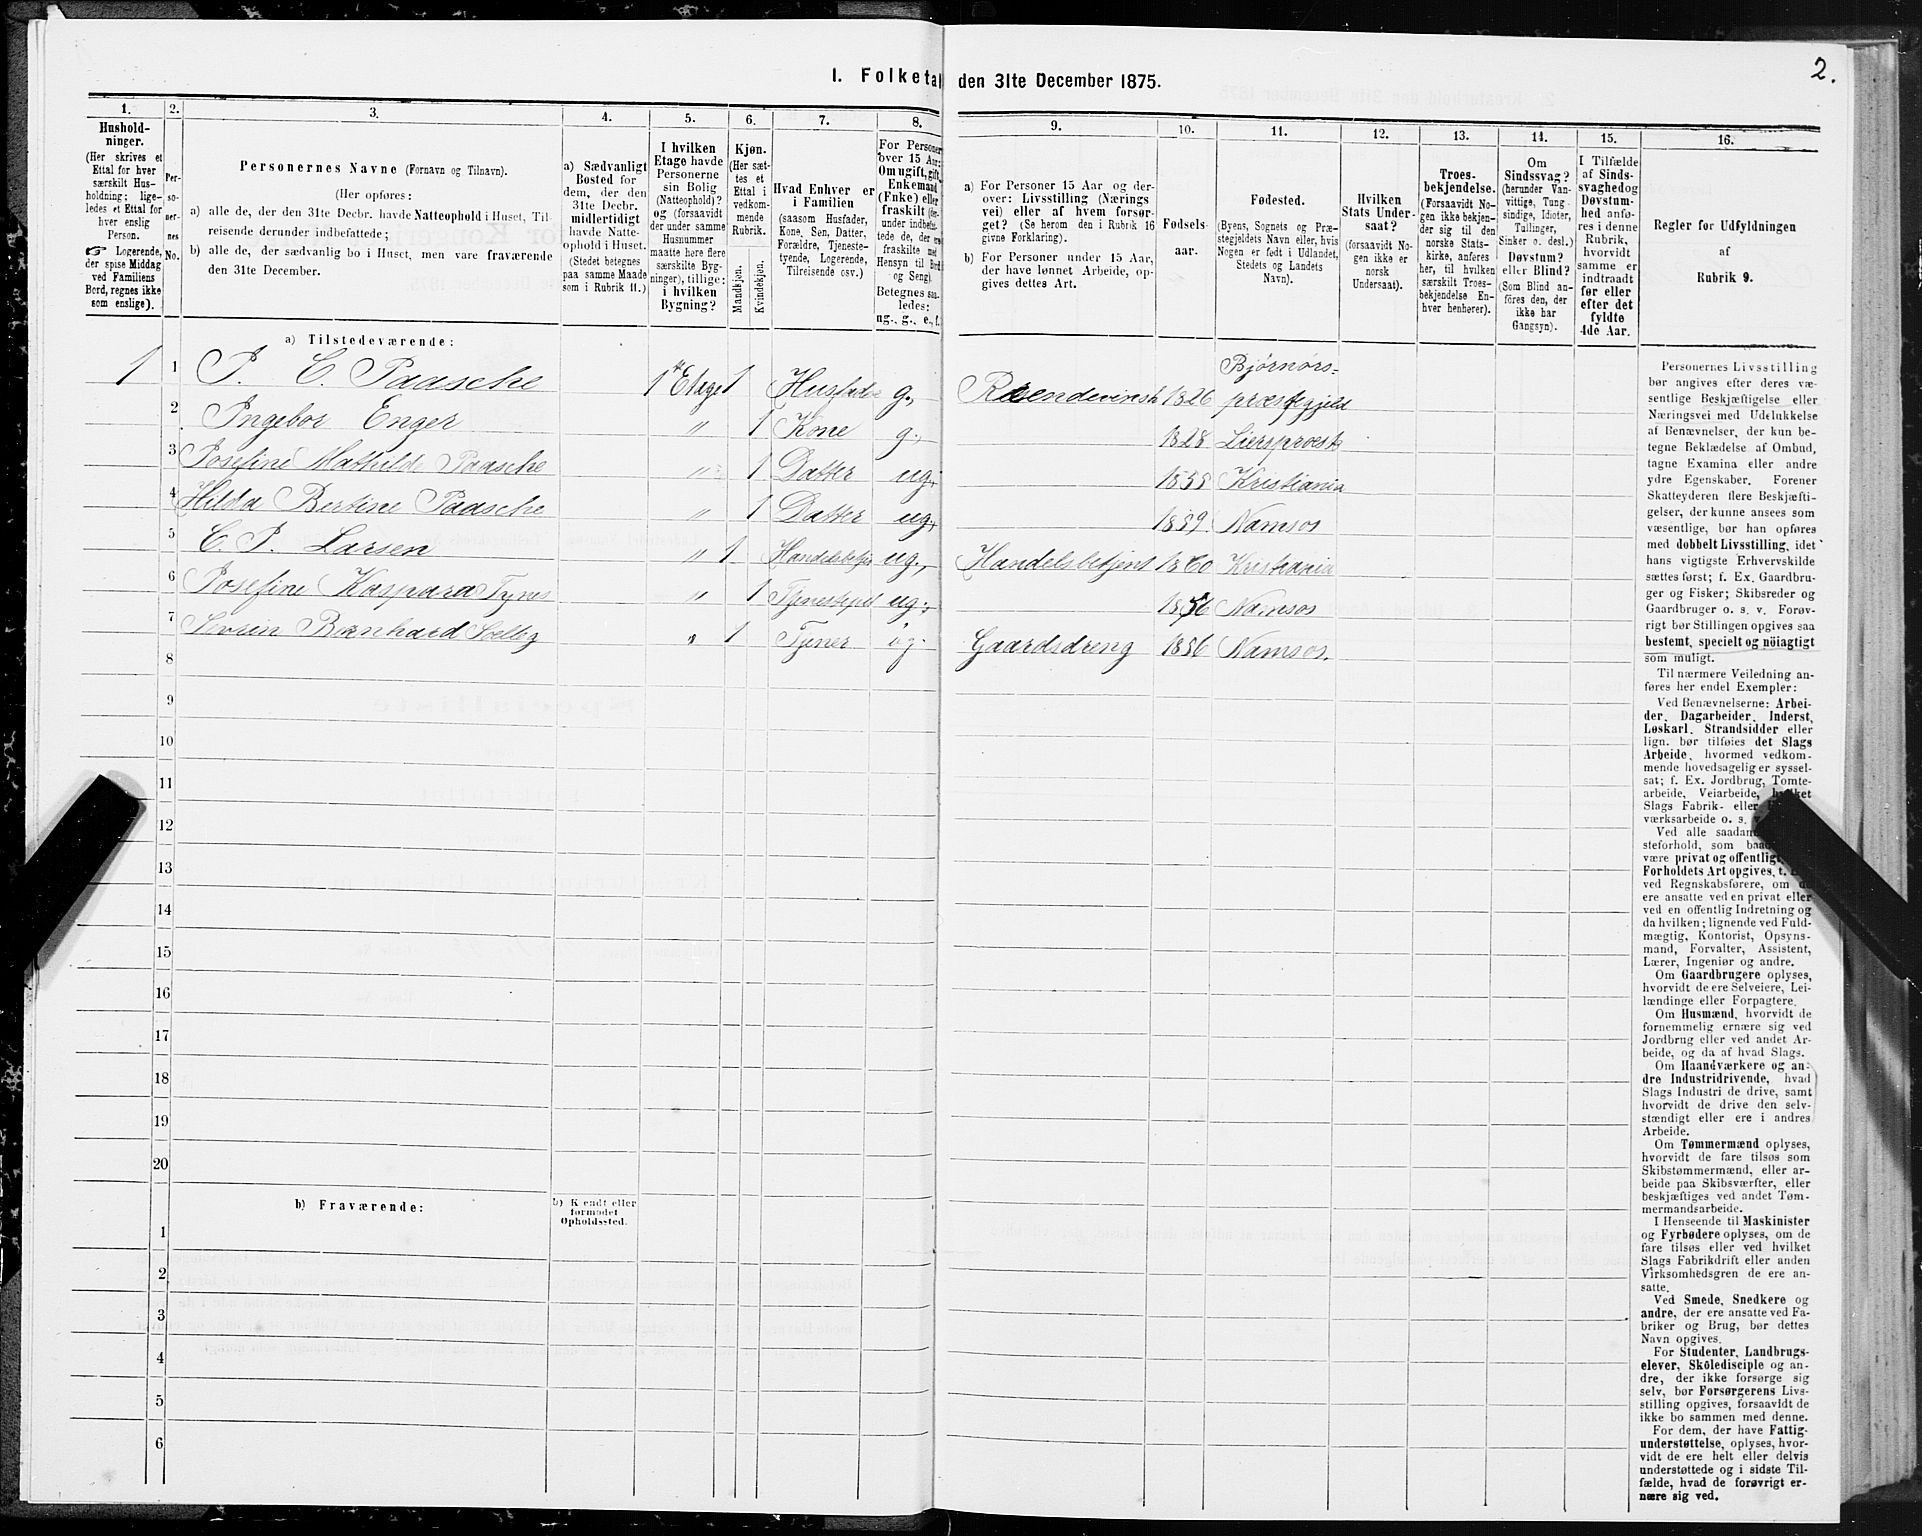 2.
I. Folketal den 31te December 1875.
1. 2. 3. 4. 5. 6. 7. 8. 9. 10. 11. 12. 13. 14. 15. 16.
Hushold-
ninger.
(Her skrives et
Ettal for hver
særskilt Hus-
holdning; lige-
ledes et Ettal for
hver enslig
Person.
☞ Logerende,
der spise Middag
ved Familiens
Bord, regnes ikke
som enslige).
Per-
so-
ner-
nes
No.
Personernes Navne (Fornavn og Tilnavn).
(Her opføres:
a) alle de, der den 31te Decbr. havde Natteophold i Huset, Til-
reisende derunder indbefattede;
b) alle de, der sædvanlig bo i Huset, men vare fraværende
den 31te December.
a) Sædvanligt
Bosted for
dem, der den
31te Decbr.
midlertidigt
havde Natte-
ophold i Huset.
(Stedet betegnes
paa samme Maade
som i Rubrik 11.)
I hvilken
Etage havde
Personerne
sin Bolig
(Natteophold)?
og (forsaavidt
der under samme
Husnummer
maatte høre flere
særskilte Byg-
ninger), tillige:
i hvilken
Bygning?
Kjøn.
(Her sæt-
tes et
Ettal i
vedkom-
mende
Rubrik.
Mandkjøn.
Kvindekjøn.
Hvad Enhver er
i Familien
(saasom Husfader,
Kone, Søn, Datter,
Forældre, Tjeneste-
tyende, Logerende,
Tilreisende osv.)
For Personer
over 15 Aar:
Om ugift, gift,
Enkemand
(Enke) eller
fraskilt (der-
under indbefat-
tede de, der ere
fraskilte med
Hensyn til Bord
og Seng).
Betegnes saa-
ledes:
ug., g., e., f.
a) For Personer 15 Aar og der-
over: Livsstilling (Nærings
vei) eller af hvem forsør-
get? (Se herom den i Rubrik 16
givne Forklaring).
b) For Personer under 15 Aar,
der have lønnet Arbeide, op-
gives dettes Art.
Fødsels-
aar.
Fødested.
(Byens, Sognets og Præ-
stegjeldets Navn eller, hvis
Nogen er født i Udlandet,
Stedets og Landets
Navn).
Hvilken
Stats Under-
saat?
(forsaavidt No-
gen ikke er
norsk
Undersaat).
Troes-
bekjendelse.
(Forsaavidt No-
gen ikke bekjen-
der sig til den
norske Stats-
kirke, anføres
her, til hvilken
særskilt Troes-
bekjendelse En-
hver henhører).
Om
Sindssvag?
(herunder Van-
vittige, Tung-
sindige, Idioter,
Tullinger,
Sinker o. desl.)
Døvstum?
eller Blind?
(Som Blind an-
føres den, der
ikke har
Gangsyn).
I Tilfælde
af Sinds-
svaghed og
Døvstum-
hed anfø-
res i denne
Rubrik,
hvorvidt
samme er
indtraadt
før eller
efter det
fyldte
4de Aar.
Regler for Udfyldningen
af
Rubrik 9.
a) Tilstedeværende:
1 1 P. C. Paasche 1ste Etage 1 Husfader g., 1826 Bjørnørs=
præstegjeld
2 Ingebor Enger " 1 Kone g., 1828
3 Josefine Mathilde Paasche " 1 Datter ug., Kristiania
4 Hilda Bertine Paasche " 1 Datter ug., 1859 Namsos
5 C. P. Larsen " 1 ug., Handelsbetjent 1860 Kristiania
6 Josefine Kaspara " 1 ug., 1856 Namsos
7 Sevrin " 1 Tjener ug. Gaardsdreng 1856 Namsos.
8
9
10
11
12
13
14
15
16
17
18
19
20
b) Fraværende:
b) Kjendt eller
formodet
Opholdssted.
1
2
3
4
5
6
Personernes Livsstilling
bør angives efter deres væ-
sentlige Beskjæftigelse eller
Næringsvei med Udelukkelse
af Benævnelser, der kun be-
tegne Beklædelse af Ombud,
tagne Examina eller andre
ydre Egenskaber. Forener
Skatteyderen flere Beskjæfti-
gelser, der kunne ansees som
væsentlige, bør han opføres
med dobbelt Livsstilling, idet
hans vigtigste Erhvervskilde
sættes først; f. Ex. Gaardbru-
ger og Fisker; Skibsreder og
Gaardbruger o. s. v. Forøv-
rigt bør Stillingen opgives saa
bestemt, specielt og nöiagtigt
som muligt.
Til nærmere Veiledning an-
føres her endel Exempler:
Ved Benævnelserne: Arbei-
der, Dagarbeider, Inderst,
Løskarl, Strandsidder eller
lign. bør tilføies det Slags
Arbeide, hvormed vedkom-
mende hovedsagelig er syssel-
sat; f. Ex. Jordbrug, Tomte-
arbeide, Veiarbeide, hvilket
Slags Fabrik- eller
værksarbeide o. s.
Ved alle saadan
steforhold, som
være privat og offentligt
Forholdets Art opgives, t.
ved Regnskabsførere, om de
ere ansatte ved en privat eller
ved en offentlig Indretning og
da hvilken; lignende ved Fuld-
mægtig, Kontorist, Opsyns-
mand, Forvalter, Assistent,
Lærer, Ingeniør og andre.
Om Gaardbrugere oplyses,
hvorvidt de ere Selveiere, Lei-
lændinge eller Forpagtere.
Om Husmænd, hvorvidt de
fornemmelig ernære sig ved
Jordbrug eller ved andet Ar-
beide, og da af hvad Slags.
Om Haandværkere og an-
dre Industridrivende, hvad
Slags Industri de drive, samt
hvorvidt de drive den selv-
stændigt eller ere i andres
Arbeide.
Om Tømmermænd oplyses,
hvorvidt de fare tilsøs som
Skibstømmermænd, eller ar-
beide paa Skibsværfter, eller
beskjæftiges ved andet Tøm-
mermandsarbeide.
I Henseende til Maskinister
og Fyrbødere oplyses, om de
fare tilsøs eller ved hvilket
Slags Fabrikdrift eller anden
Virksomhedsgren de ere an-
satte.
Ved Smede, Snedkere og
andre, der ere ansatte ved Fa-
briker og Brug, bør dettes
Navn opgives.
For Studenter, Landbrugs-
elever, Skoledisciple og an-
dre, der ikke forsørge sig
selv, bør Forsørgerens Livs-
stilling opgives, forsaavidt de
ikke bo sammen med denne.
For dem, der have Fattig-
understøttelse, oplyses, hvor-
vidt de ere helt eller delvis
understøttede og i sidste Til-
fælde, hvad de forøvrigt er-
nære sig ved.